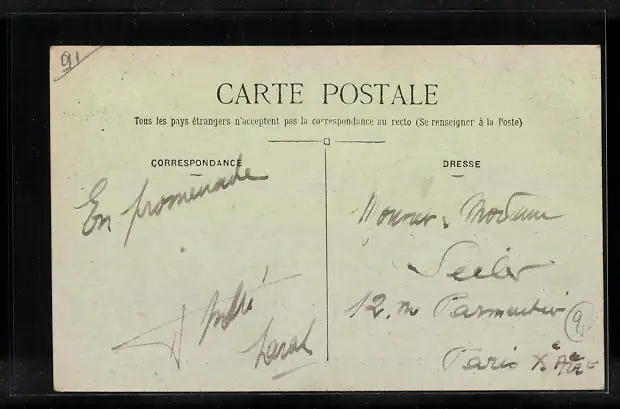 91
CARTE POSTALE
Tous les pays étrangers n'acceptent pas la correspondance au recto (Se renseigner à la Poste)
CORRESPONDANCE
DRESSE
En promenade
Monsieur, Madame
Seiler
André
12, r Parmentier
Paris X